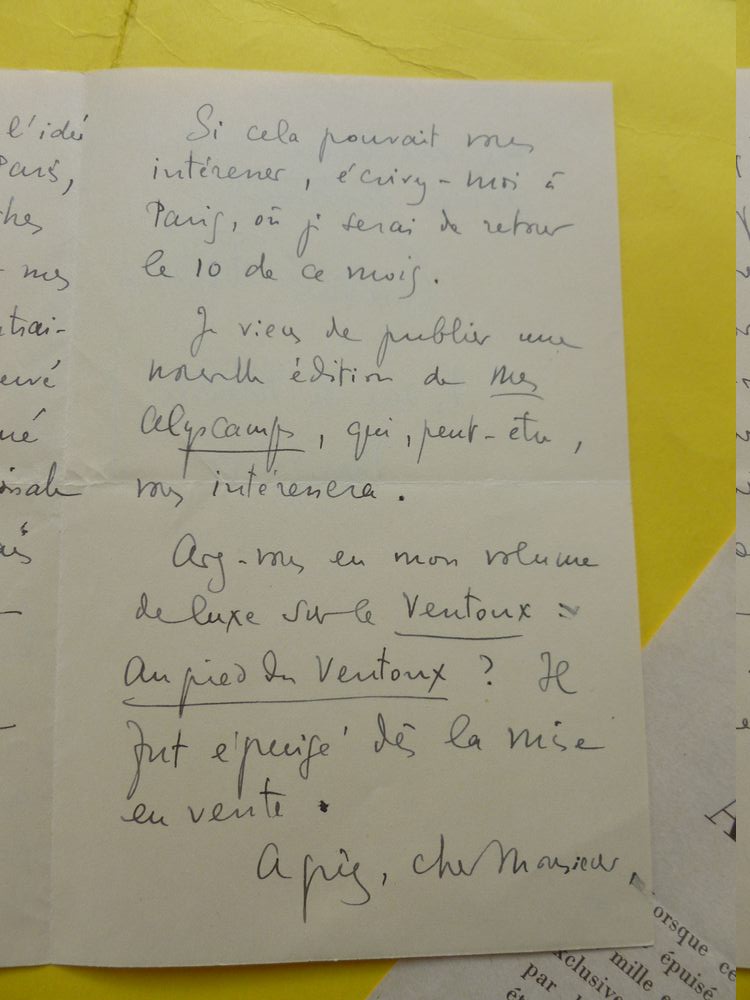 l'idé
Paris,
ches
- mes
trai-
ervé
né
Si cela pouvait vous
intéresser, écrivez-moi à
Paris, où je serai de retour
le 10 de ce mois.
Je viens de publier une
nouvelle édition de mes
Alyscamps, qui, peut-être,
vous intéressera.
Avez-vous eu mon volume
de luxe sur le Ventoux :
Au pied du Ventoux ? Il
fut épuisé dès la mise
en vente.
Agréez, cher Monsieur,
orsque ce
épuisé
mille
xclusiv
par